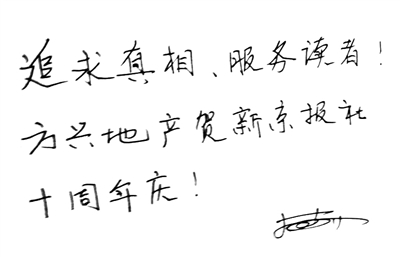 追求真相、服务读者！
方兴地产贺新京报社
十周年庆！